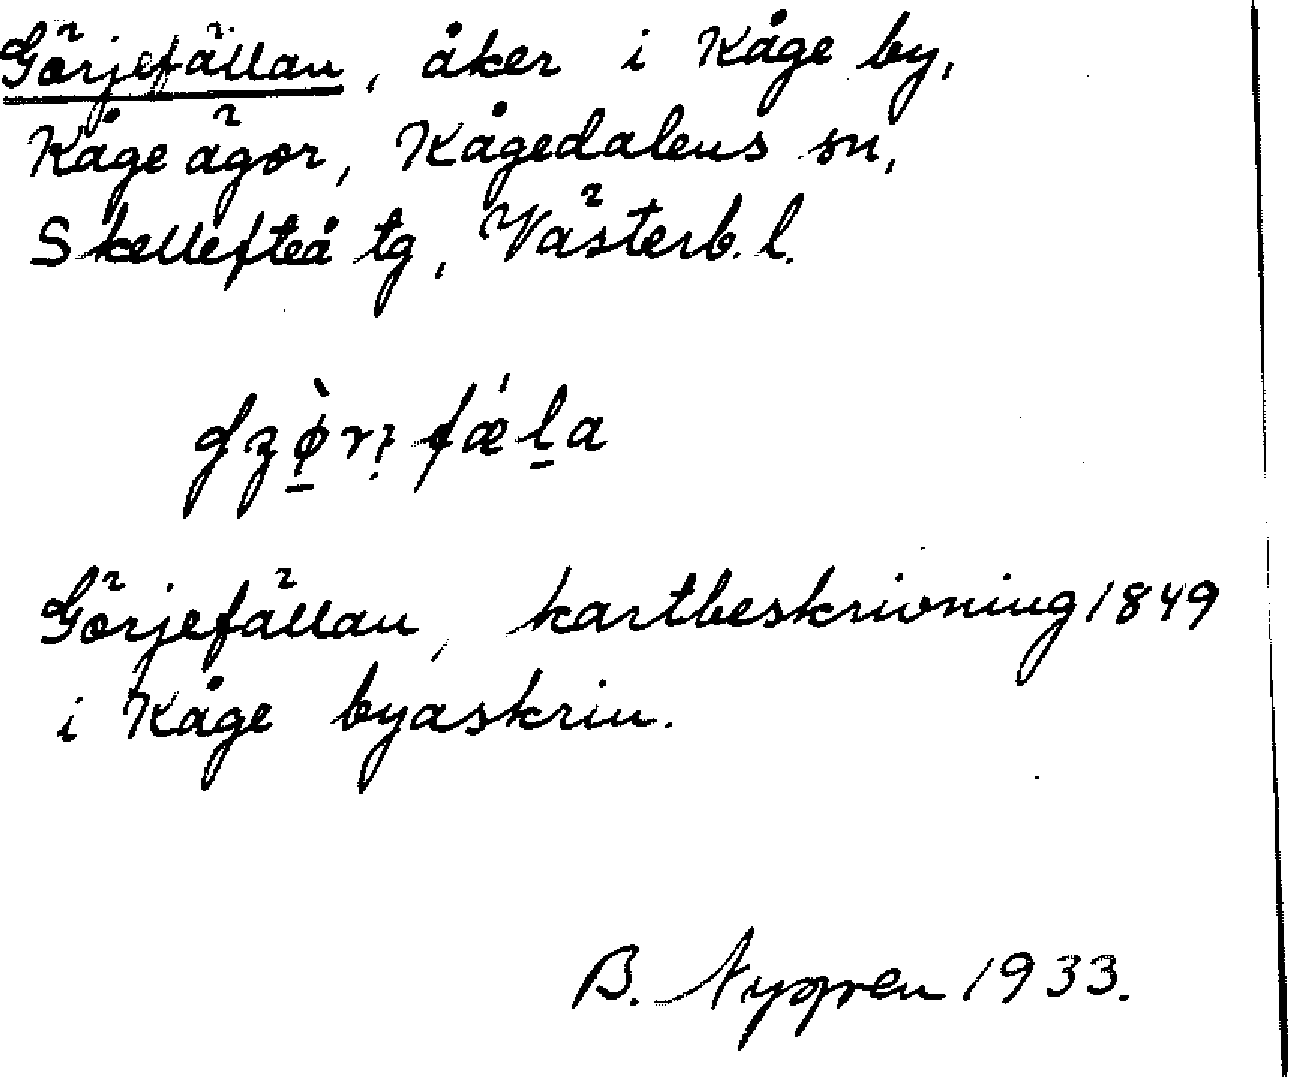 Görjefällan, åker i Kåge by,
Kåge ägor, Kågedalens sn,
Skellefteå tg, Västerb. l.
Görjefällan, kartbeskrivning 1849
i Kåge byaskrin.
B. Nygren 1933.